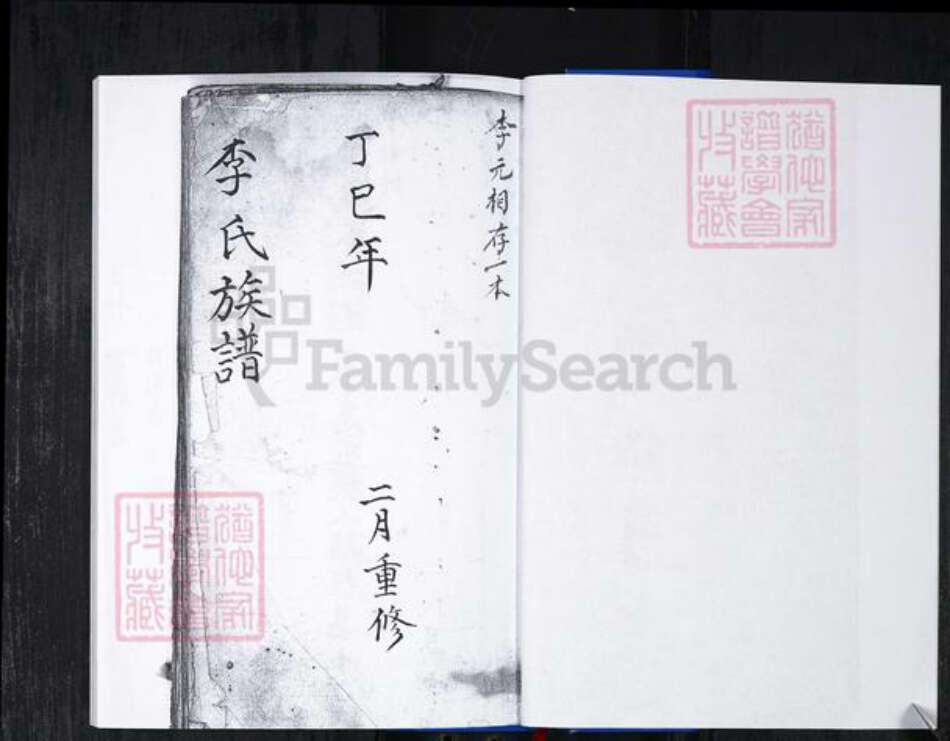 李元相存一本
丁巳年 二月重修
李氏族譜
FamilySearch
譜學會
收藏